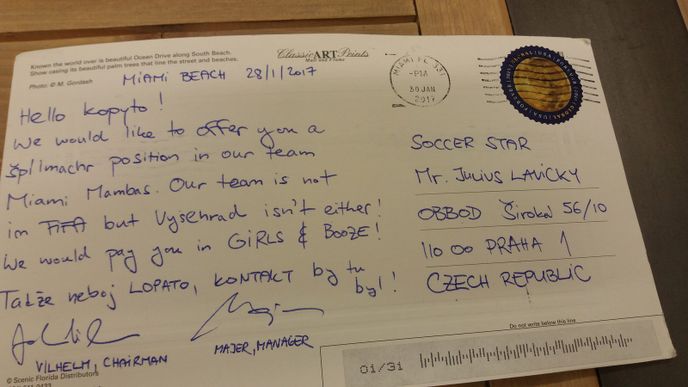 Known the world over is beautiful Ocean Drive along South Beach.
Show casing its beautiful palm trees that line the street and beaches.
Photo: © M. Gordash
Classic ART Prints
Mail and Frame
MIAMI BEACH 28/1/2017
MIAMI FL 331
-PM
30 JAN
2017
Hello kopyto!
We would like to offer you a
špílmachr position in our team
Miami Mambas. Our team is not
im FIFA but Vysehrad isn't either!
We would pay you in GIRLS & BOOZE!
Takže neboj LOPATO, KONTAKT by tu
byl!
VILHELM, CHAIRMAN
MAJER, MANAGER
SOCCER STAR
Mr. JULIUS LAVIČKY
OBBOD ŠIROKA 56/10
110 00 PRAHA 1
CZECH REPUBLIC
Do not write below this line
01/31
© Scenic Florida Distributors